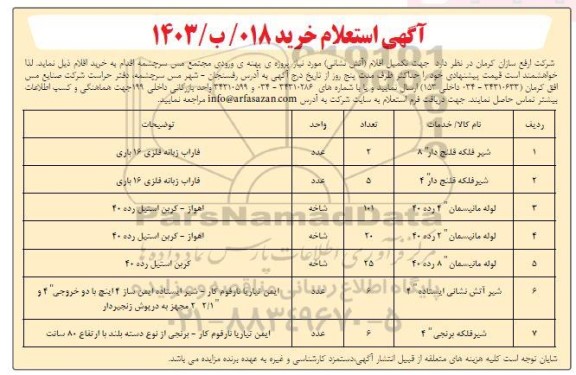 آگهی استعلام خرید ۰۱۸/ ب/ ۱۴۰۳
شرکت ارفع سازان کرمان در نظر دارد جهت تکمیل اقلام (آتش نشانی) مورد نیاز پروژه ی پهنه ی ورودی مجتمع مس سرچشمه اقدام به خرید اقلام ذیل نماید. لذا
خواهشمند است قیمت پیشنهادی خود را حداکثر ظرف مدت پنج روز از تاریخ درج آگهی به آدرس رفسنجان - شهر مس سرچشمه، دفتر حراست شرکت صنایع مس
افق کرمان (۳۴۳۱۰۶۳۳ - ۰۳۴ داخلی ۱۵۳) ارسال نمایید و یا با شماره های ۳۴۳۱۰۲۸۶ - ۰۳۴ و ۳۴۳۱۰۵۹۹ واحد بازرگانی داخلی ۱۹۹ جهت هماهنگی و کسب اطلاعات
بیشتر تماس حاصل نمایند. جهت دریافت فرم استعلام به سایت شرکت به آدرس info@arfasazan.com مراجعه نمایید.
ردیف نام کالا/ خدمات تعداد واحد توضیحات
۱ شیر فلکه فلنج دار" ۸ ۲ عدد فاراب زبانه فلزی ۱۶ باری
۲ شیرفلکه فلنج دار" ۴ ۵ عدد فاراب زبانه فلزی ۱۶ باری
۳ لوله مانیسمان " ۴ رده ۴۰ ۱۰۱ شاخه اهواز - کربن استیل رده ۴۰
۴ لوله مانیسمان " ۲ رده ۴۰ ۲۰ شاخه اهواز - کربن استیل رده ۴۰
۵ لوله مانیسمان " ۸ رده ۴۰ ۲۵ شاخه کربن استیل رده ۴۰
۶ شیر آتش نشانی ایستاده " ۴ ۶ عدد ایمن تیاریا نارفوم کار - شیر ایستاده ایمن ساز ۴ اینچ با دو خروجی" ۴ و
" ۲ ۱/۲ مجهز به درپوش زنجیردار
۷ شیرفلکه برنجی" ۴ ۶ عدد ایمن تیاریا نارفوم کار - برنجی از نوع دسته بلند با ارتفاع ۸۰ سانت
شایان توجه است کلیه هزینه های متعلقه از قبیل انتشار آگهی،دستمزد کارشناسی و غیره به عهده برنده مزایده می باشد.
ParsNamadData
۰۲۱-۸۸۳۴۹۶۷۰-۵